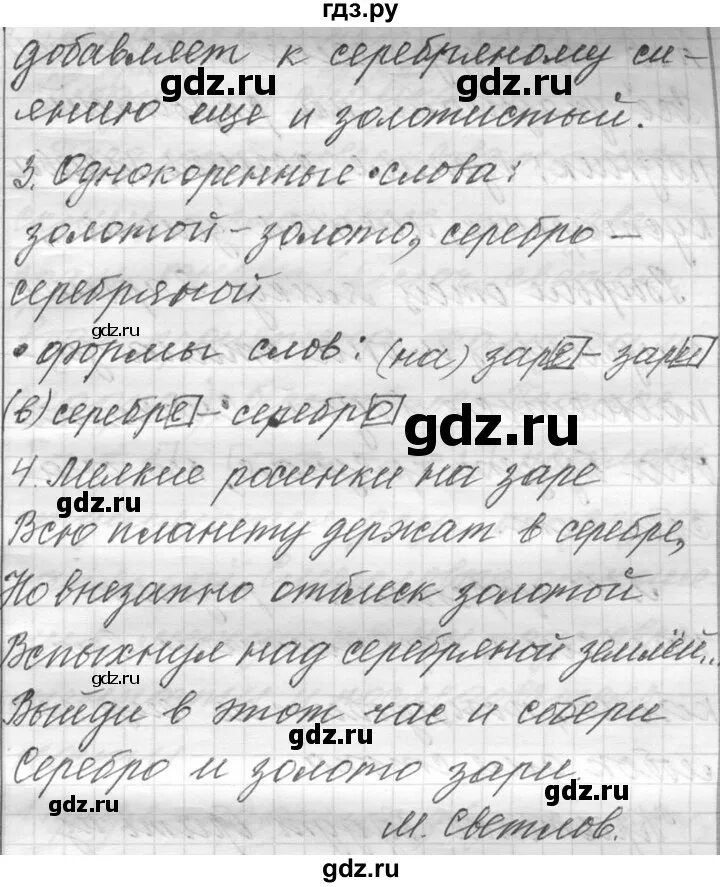 гдз.ру
добавляет к серебряному си-
янию еще и золотистый.
3. Однокоренные слова:
золотой - золото, серебро -
серебряной
• формы слов: (на) заре - зари
(в) серебре - серебро
4. Мелкие росинки на заре
Всю планету держат в серебре,
Но внезапно отблеск золотой
Вспыхнул над серебряной землёй...
Выйди в этот час и собери
Серебро и золото зари.
М. Светлов.
gdz.ru
gdz.ru
gdz.ru
gdz.ru
gdz.ru
gdz.ru
gdz.ru
gdz.ru
gdz.ru
gdz.ru
gdz.ru
gdz.ru